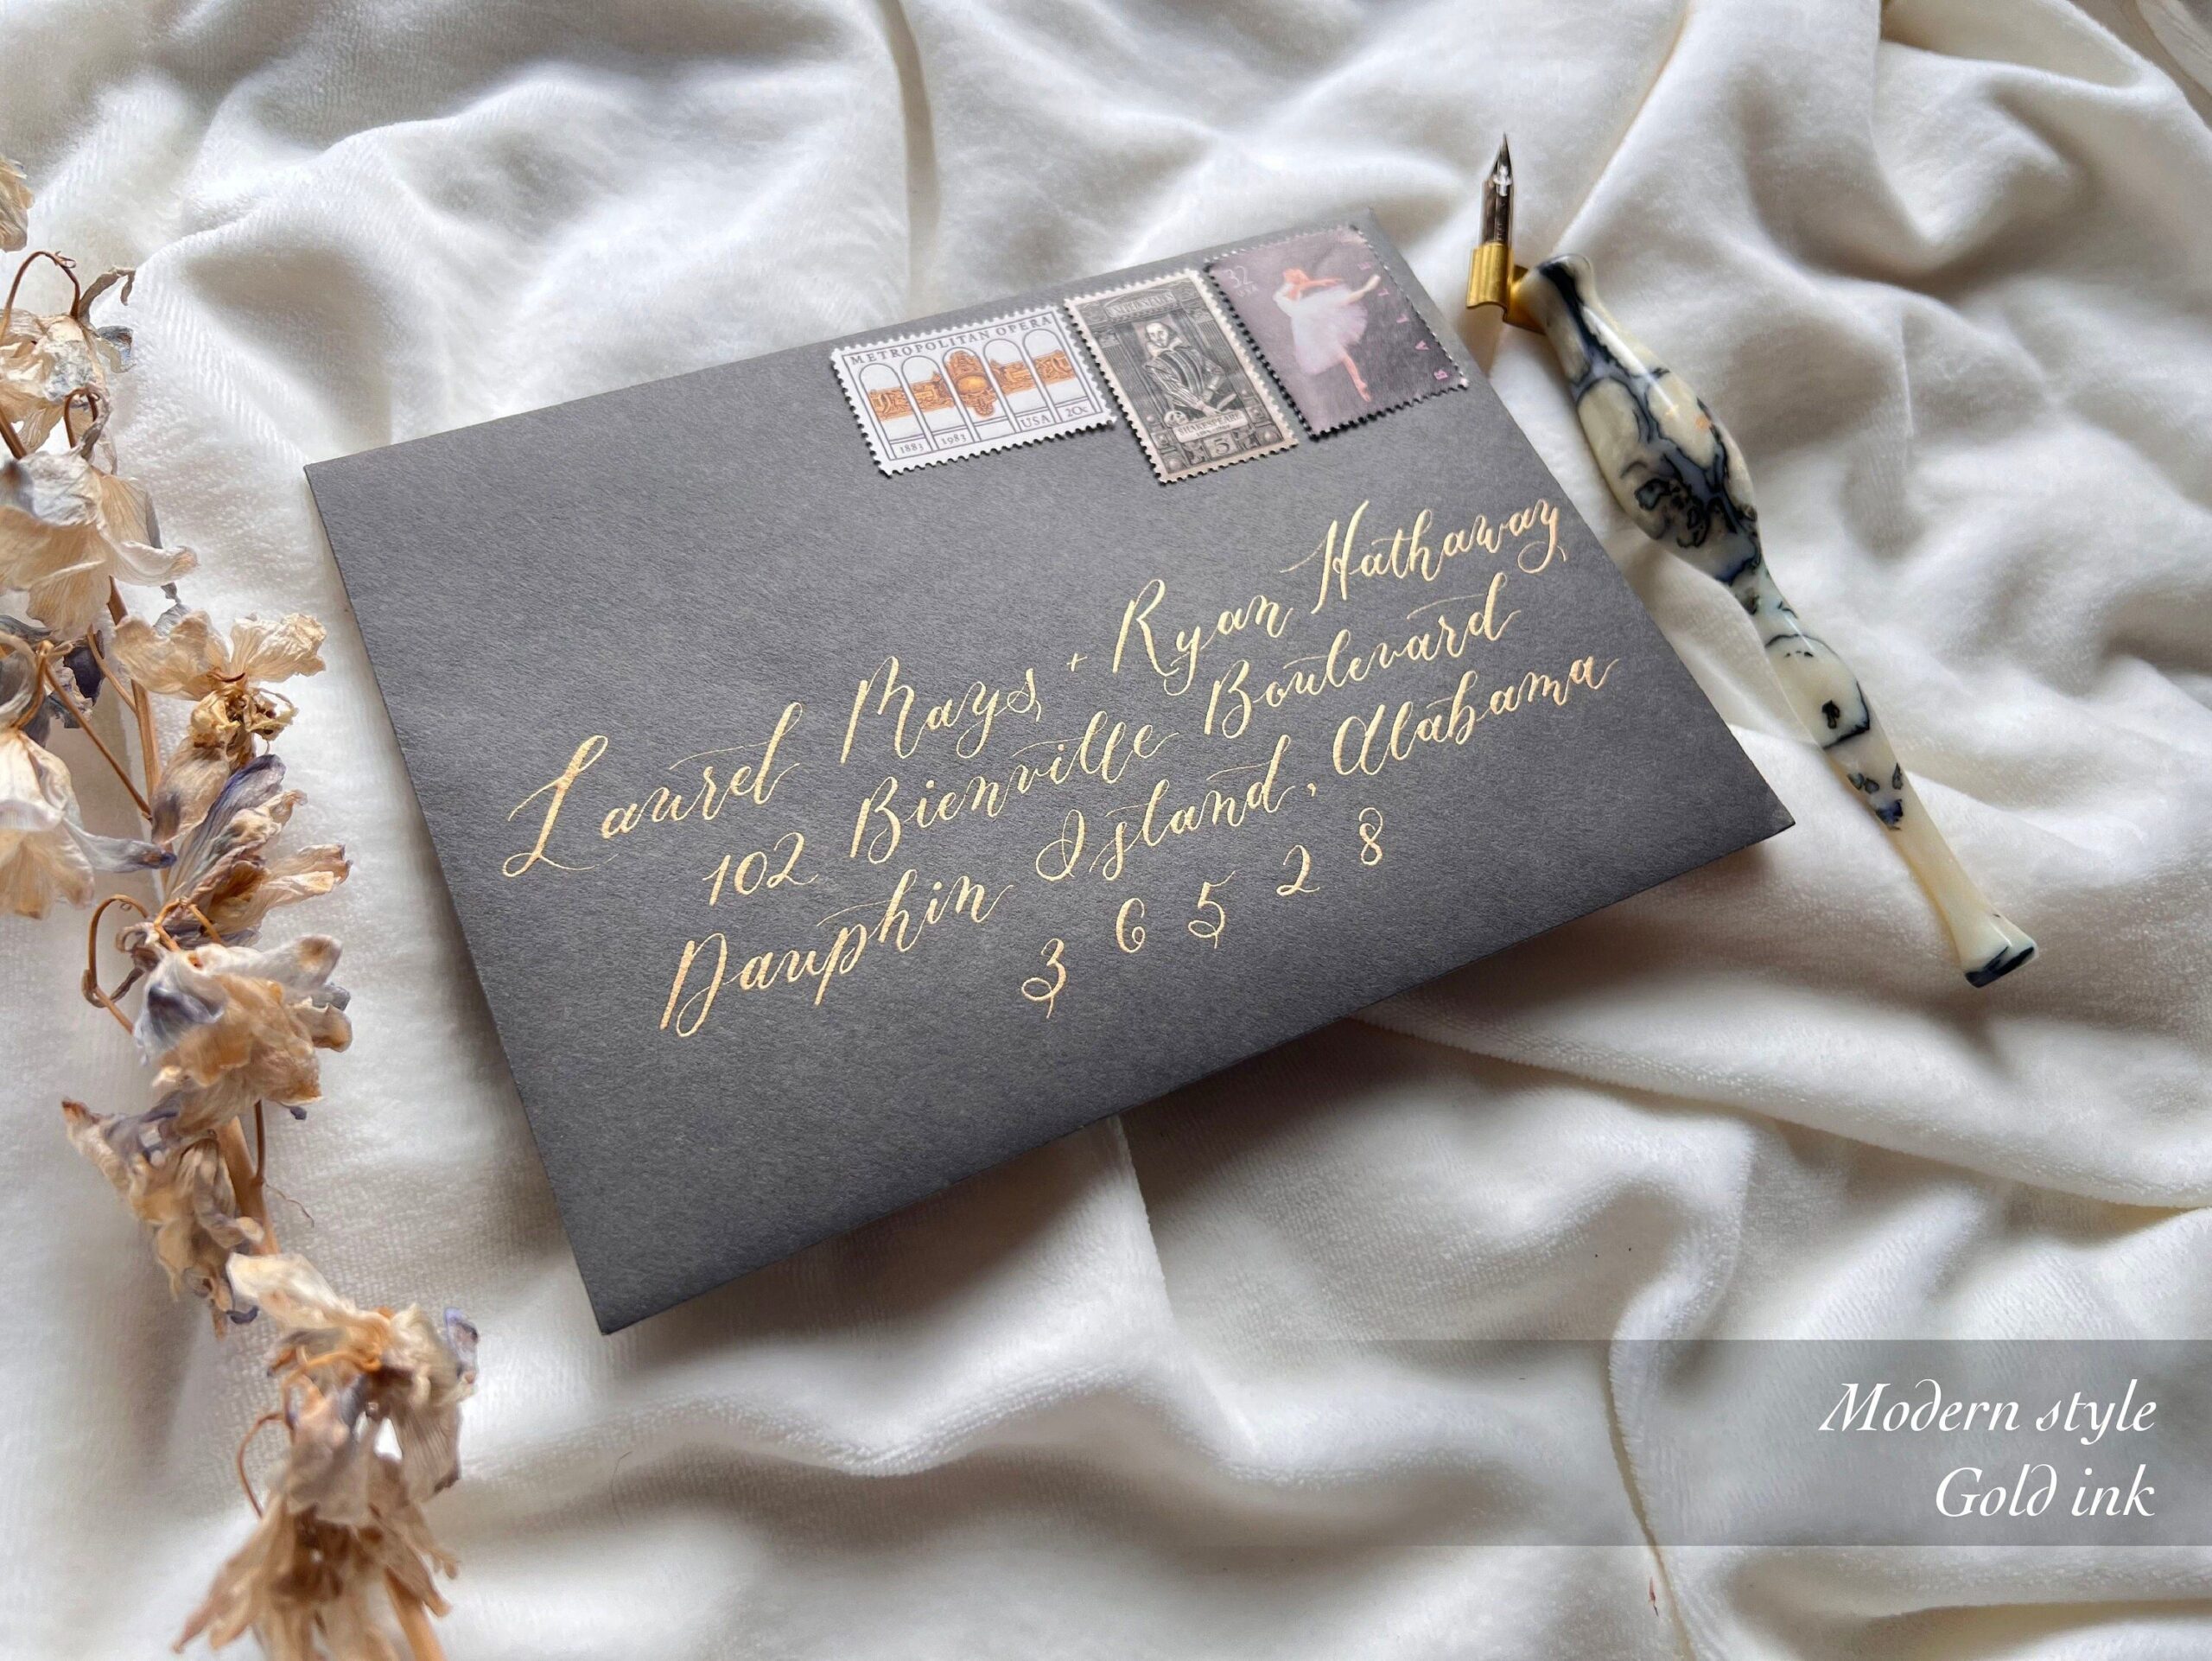 METROPOLITAN OPERA
1883 1983 USA 20c
SHAKESPEARE
5
32
USA
BALLET
Laurel Mays + Ryan Hathaway
102 Bienville Boulevard
Dauphin Island, Alabama
3 6 5 2 8
Modern style
Gold ink